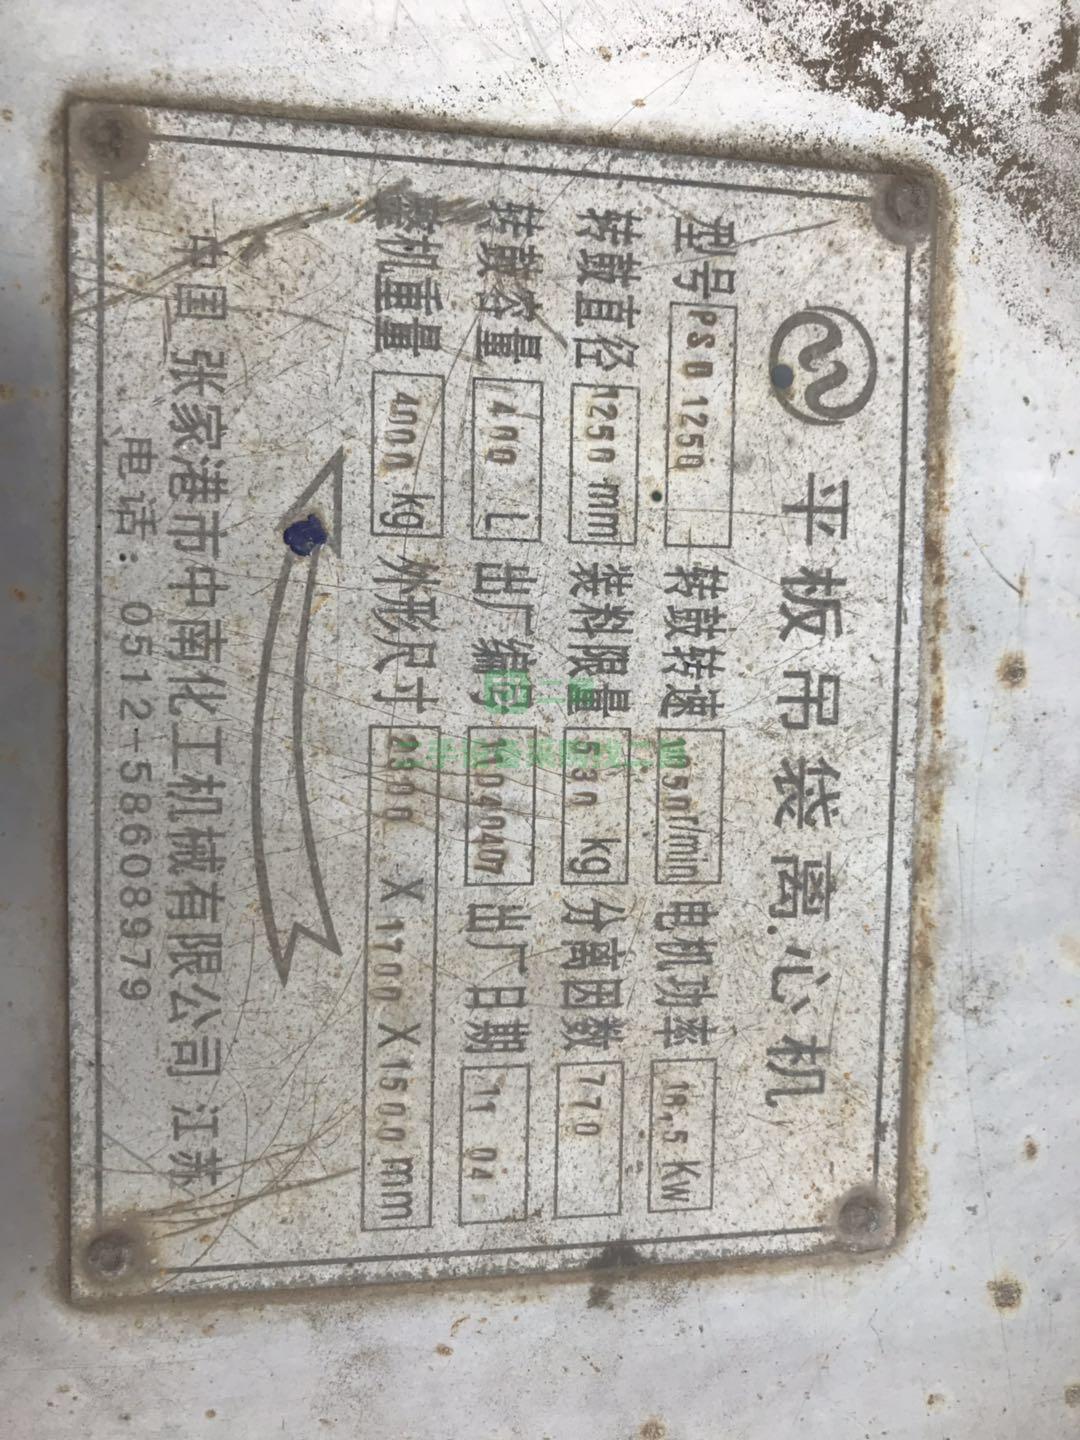 平板吊袋离心机
型号 PSD1250 转鼓转速 1050r/min 电机功率 18,5 Kw
转鼓直径 1250 mm 装料限量 530 kg 分离因数 770
转鼓容量 400 L 出厂编号 出厂日期 11 04
整机重量 4000 kg 外形尺寸 X1700 X1500 mm
中国 张家港市中南化工机械有限公司 江苏
电话：0512-58608979